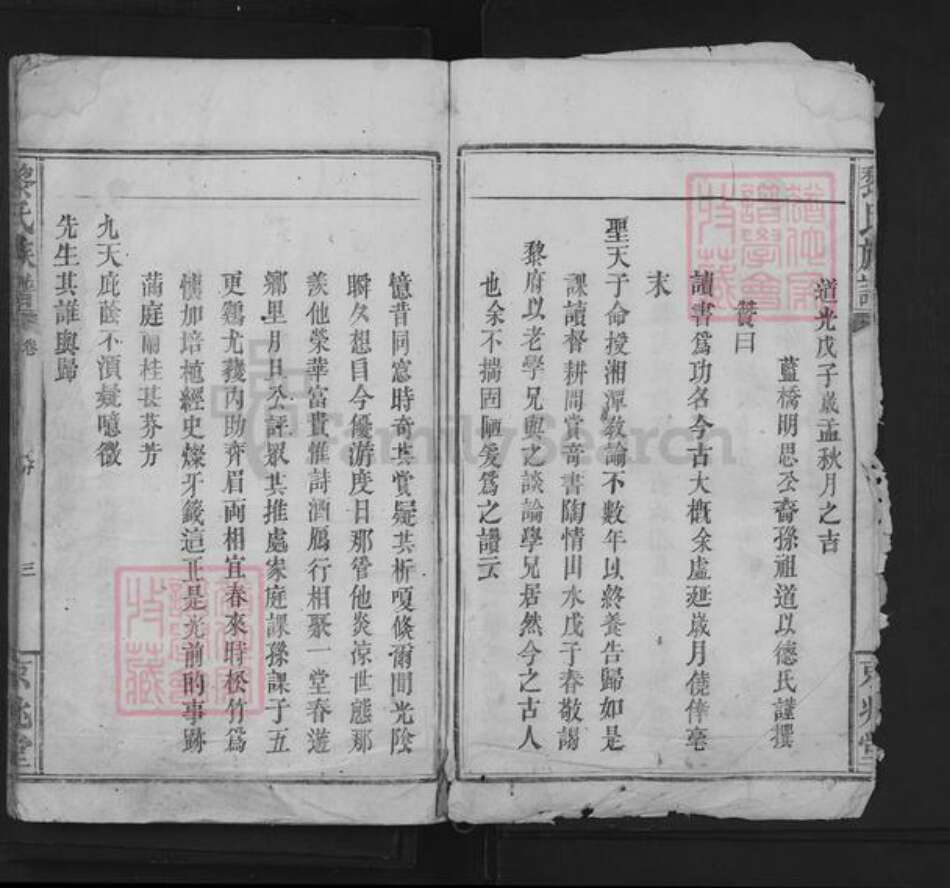 道光戊子歲孟秋月之吉
藍橋明思公裔孫祖道以德氏謹撰
贊曰
讀書為功名今古大槪余虛延歲月僥倖毫
末
聖天子命授湘潭敎諭不數年以終養告歸如是
課讀督耕間賞奇書陶情山水戊子春敬謁
黎府以老學兄與之談論學兄居然今之古人
也余不揣固陋爰為之讚云
憶昔同窓時奇共賞疑共析嗄倏爾間光陰
瞬久想目今優游度日那管他炎凉世態那
羨他榮華富貴惟詩酒鴈行相聚一堂春遊
鄉里月旦公評眾共推處家庭課孫課子五
更鷄尤羨內助齊眉両相宜春來時松竹為
懐加培植經史燦牙籤這正是光前的事跡
滿庭蘭桂甚芬芳
九天庇蔭不湏疑噫微
先生其誰與歸
黎氏族譜
卷
三
京兆堂
黎氏族譜
京兆堂
FamilySearch